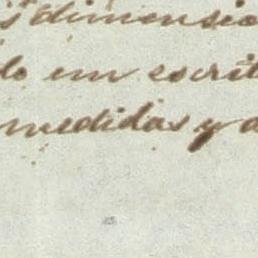 dimensio
do em escrit
medidas y a